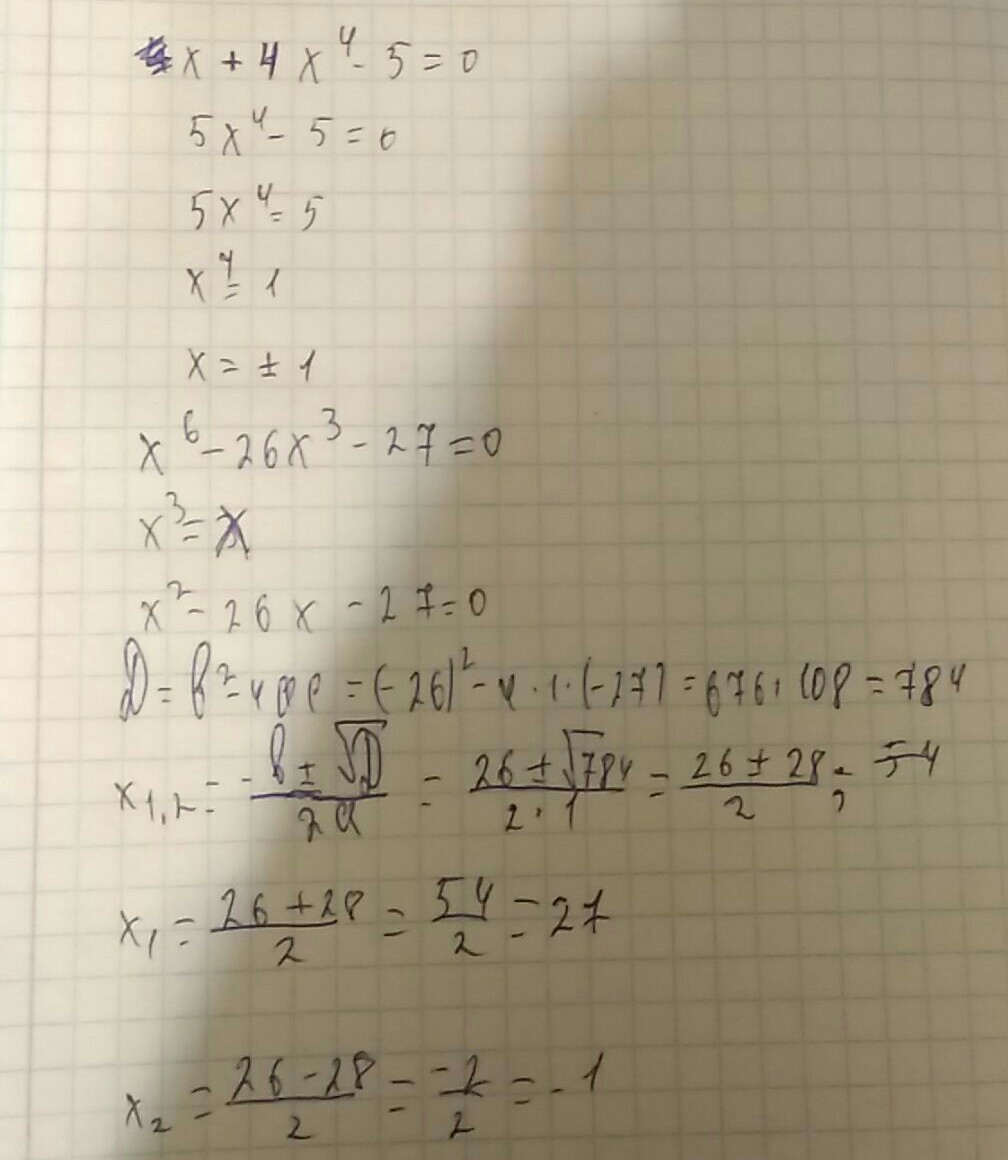 x + 4x⁴ - 5 = 0
5x⁴ - 5 = 0
5x⁴ = 5
x⁴ = 1
x = ± 1
x⁶ - 26x³ - 27 = 0
x³ = x
x² - 26x - 27 = 0
D = b² - 4ac = (-26)² - 4 · 1 · (-27) = 676 + 108 = 784
x₁,₂ = (-b ± √D)/(2a) = (26 ± √784)/(2 · 1) = (26 ± 28)/2 ;
x₁ = (26 + 28)/2 = 54/2 = 27
x₂ = (26 - 28)/2 = -2/2 = -1